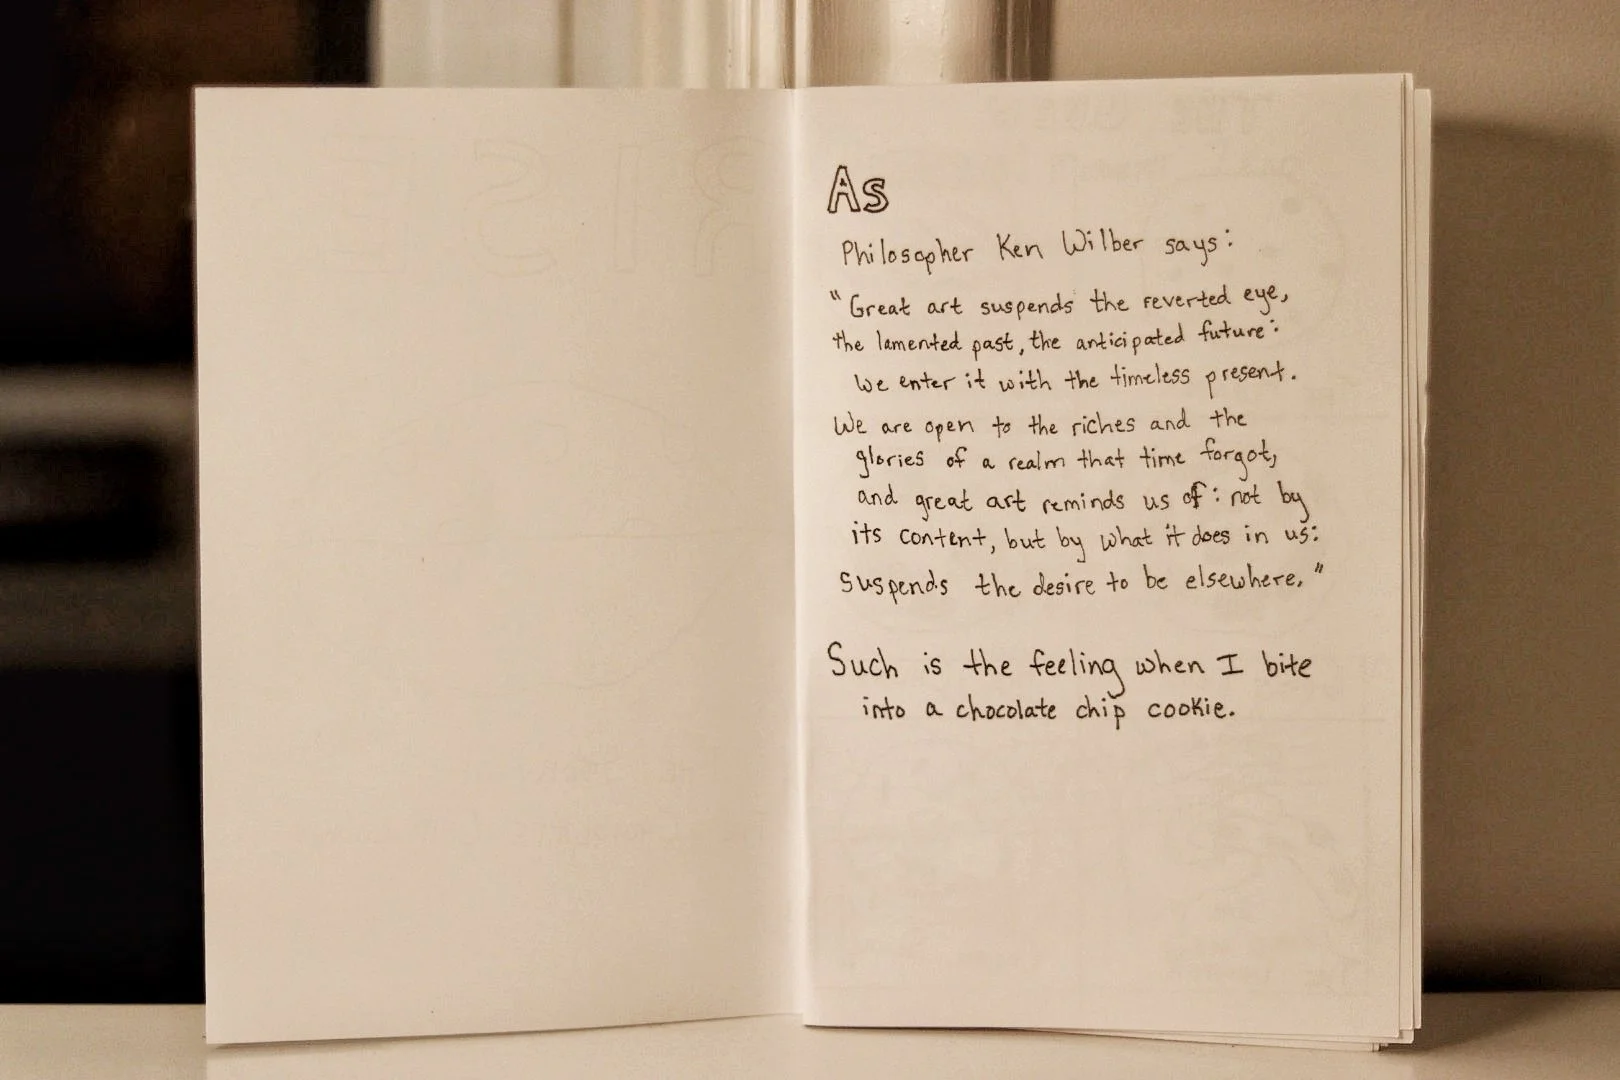 As
Philosopher Ken Wilber says:
"Great art suspends the reverted eye,
the lamented past, the anticipated future:
we enter it with the timeless present.
We are open to the riches and the
glories of a realm that time forgot,
and great art reminds us of: not by
its content, but by what it does in us:
suspends the desire to be elsewhere."
Such is the feeling when I bite
into a chocolate chip cookie.